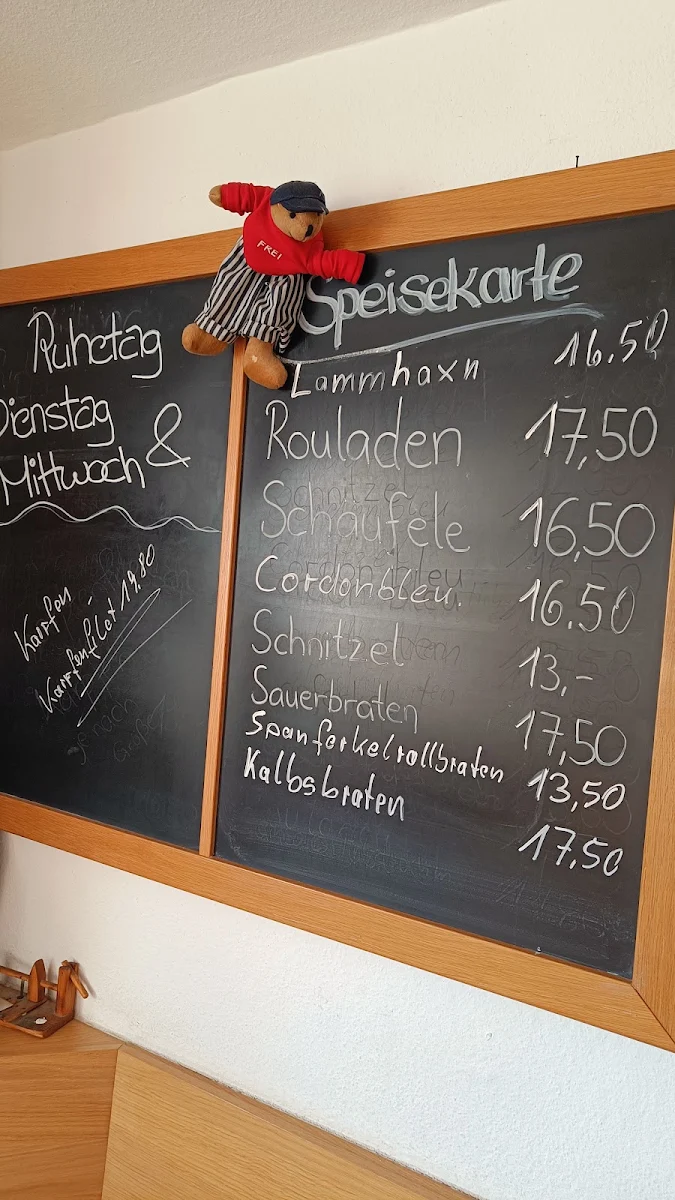 Ruhetag
Dienstag
& Mittwoch
Karpfen
Karpfenfilet 19.80
FREI
Speisekarte
Lammhaxn 16.50
Rouladen 17,50
Schäufele 16,50
Cordonbleu. 16.50
Schnitzel 13,-
Sauerbraten 17,50
Spanferkelrollbraten 13,50
Kalbsbraten 17.50